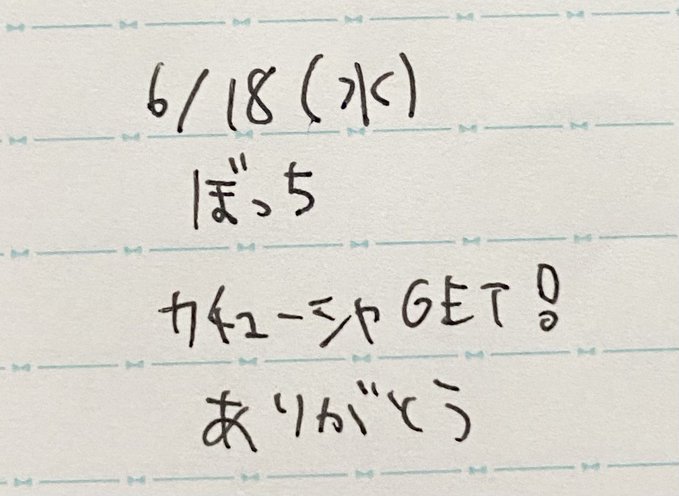 6/18(水)
ぼっち
カチューシャGET!
ありがとう